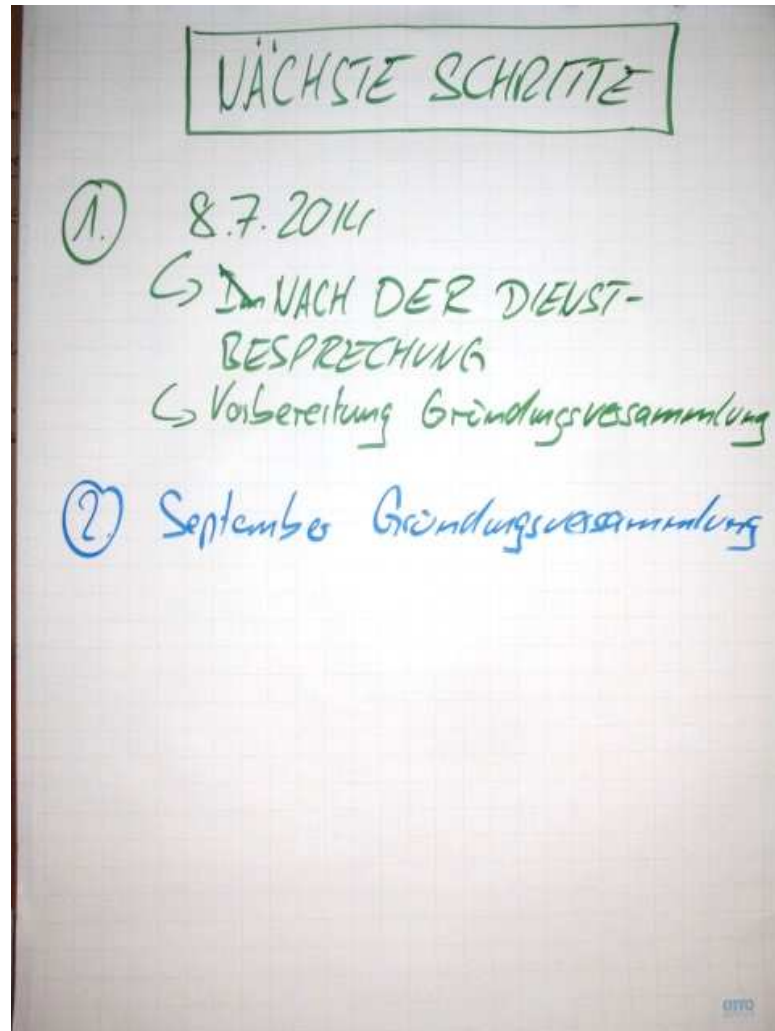 NÄCHSTE SCHRITTE
1. 8.7.2014
↳ NACH DER DIENST-
BESPRECHUNG
↳ Vorbereitung Gründungsversammlung
2. September Gründungsversammlung